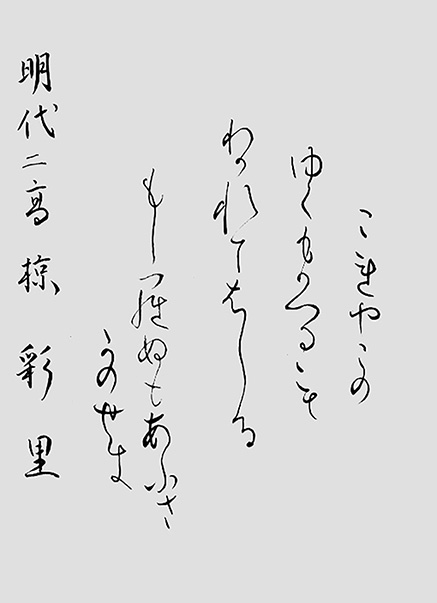 これやこの
ゆくもかへるも
わかれてはしる
もしらぬもあふさ
かのせき
明代二高 椋 彩里